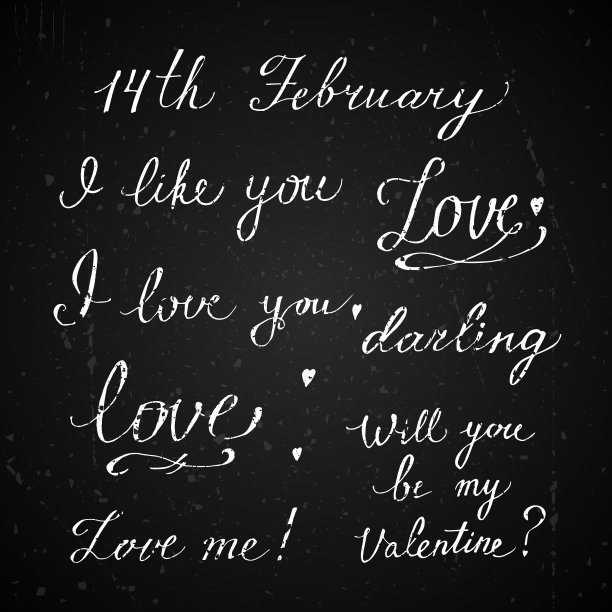 14th February
I like you
Love
I love you
darling
love
Will you
be my
Valentine?
Love me!